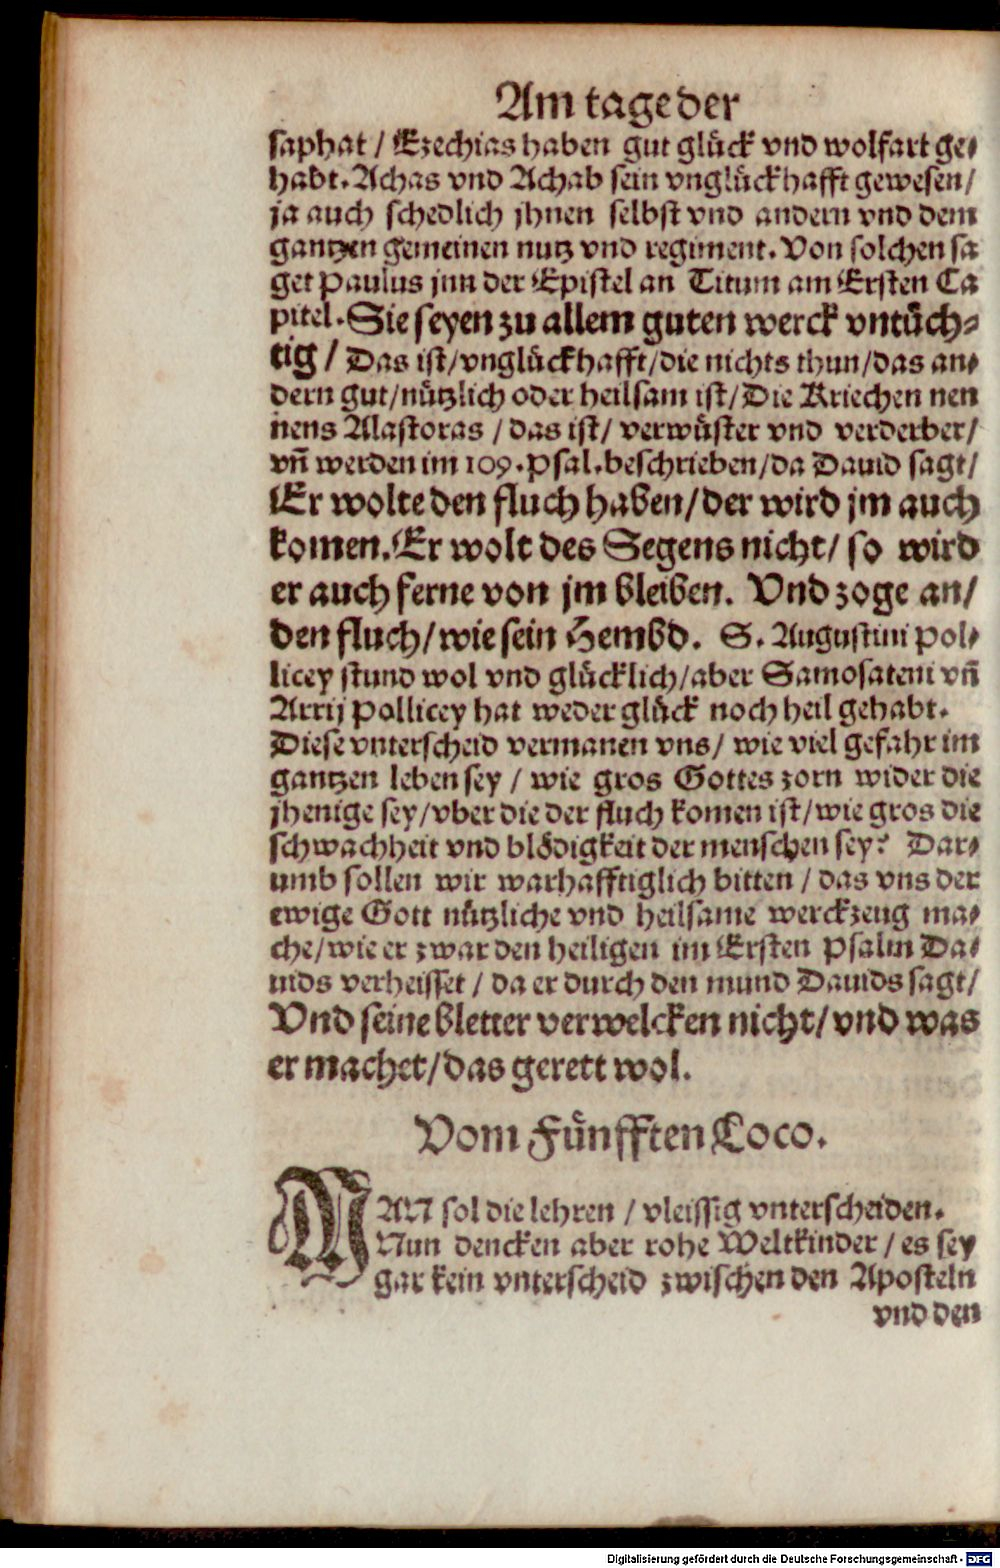 Am tage der
saphat / Ezechias haben gut glück vnd wolfart ge⸗
habt. Achas vnd Achab sein vnglückhafft gewesen /
ja auch schedlich jhnen selbst vnd andern vnd dem
gantzen gemeinen nutz vnd regiment. Von solchen sa
get Paulus jnn der Epistel an Titum am Ersten Ca
pitel. Sie seyen zu allem guten werck vntüch⸗
tig / Das ist / vnglückhafft / die nichts thun / das an⸗
dern gut / nützlich oder heilsam ist / Die Kriechen nen
nens Alastoras / das ist / verwüster vnd verderber /
vñ werden im 109. Psal. beschrieben / da Dauid sagt /
Er wolte den fluch haben / der wird jm auch
komen. Er wolt des Segens nicht / so wird
er auch ferne von jm bleiben. Vnd zoge an /
den fluch / wie sein Hembd. S. Augustini Pol⸗
licey stund wol vnd glücklich / aber Samosateni vñ
Arrij Pollicey hat weder glück noch heil gehabt.
Diese vnterscheid vermanen vns / wie viel gefahr im
gantzen leben sey / wie gros Gottes zorn wider die
jhenige sey / vber die der fluch komen ist / wie gros die
schwachheit vnd blödigkeit der menschen sey? Dar⸗
umb sollen wir warhafftiglich bitten / das vns der
ewige Gott nützliche vnd heilsame werckzeug ma⸗
che / wie er zwar den heiligen im Ersten Psalm Da⸗
uids verheisset / da er durch den mund Dauids sagt /
Vnd seine bletter verwelcken nicht / vnd was
er machet / das gerett wol.
Vom Fünfften Loco.
MAN sol die lehren / vleissig vnterscheiden.
Nun dencken aber rohe Weltkinder / es sey
gar kein vnterscheid zwischen den Aposteln
vnd den
Digitalisierung gefördert durch die Deutsche Forschungsgemeinschaft - DFG